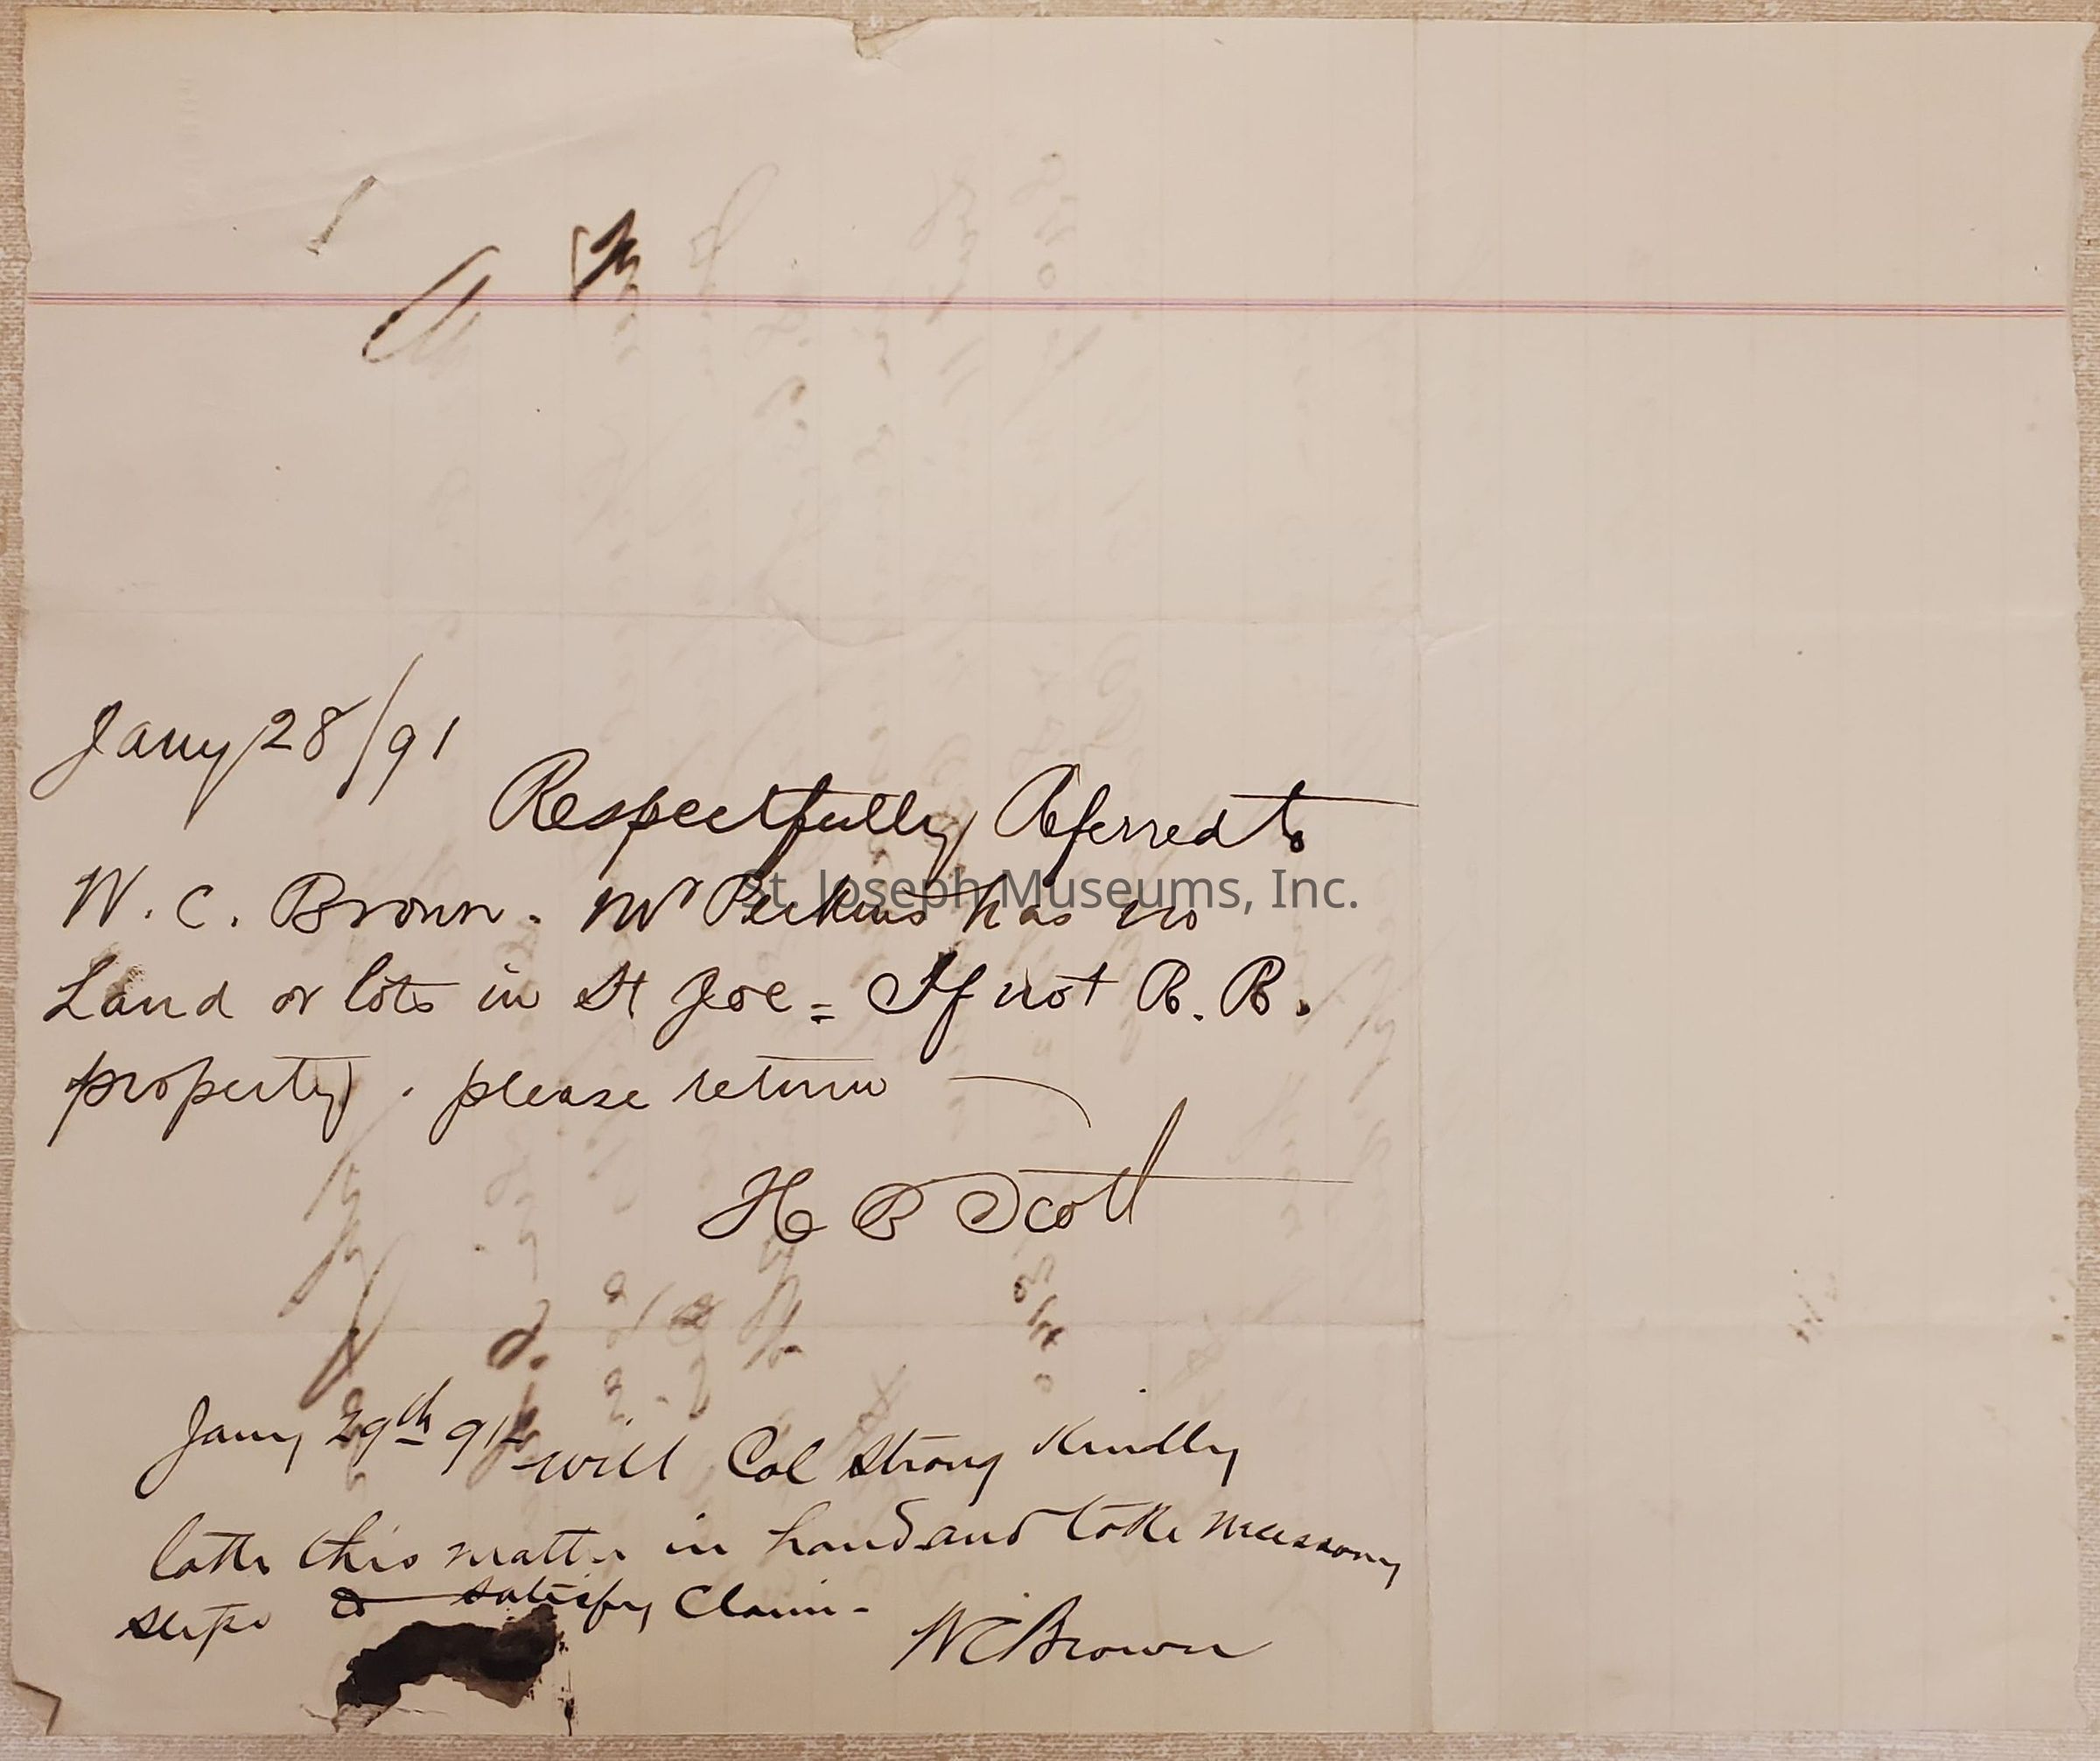 Jany 28/91
Respectfully Referred to
W. C. Brown. Mr Perkins has no
Land or lots in St Joe = If not R. R.
property. please return
H B Scott
Jany 29th 91 - will Col Strong Kindly
take this matter in hand and take necessary
steps to satisfy Claim -
WC Brown
St. Joseph Museums, Inc.